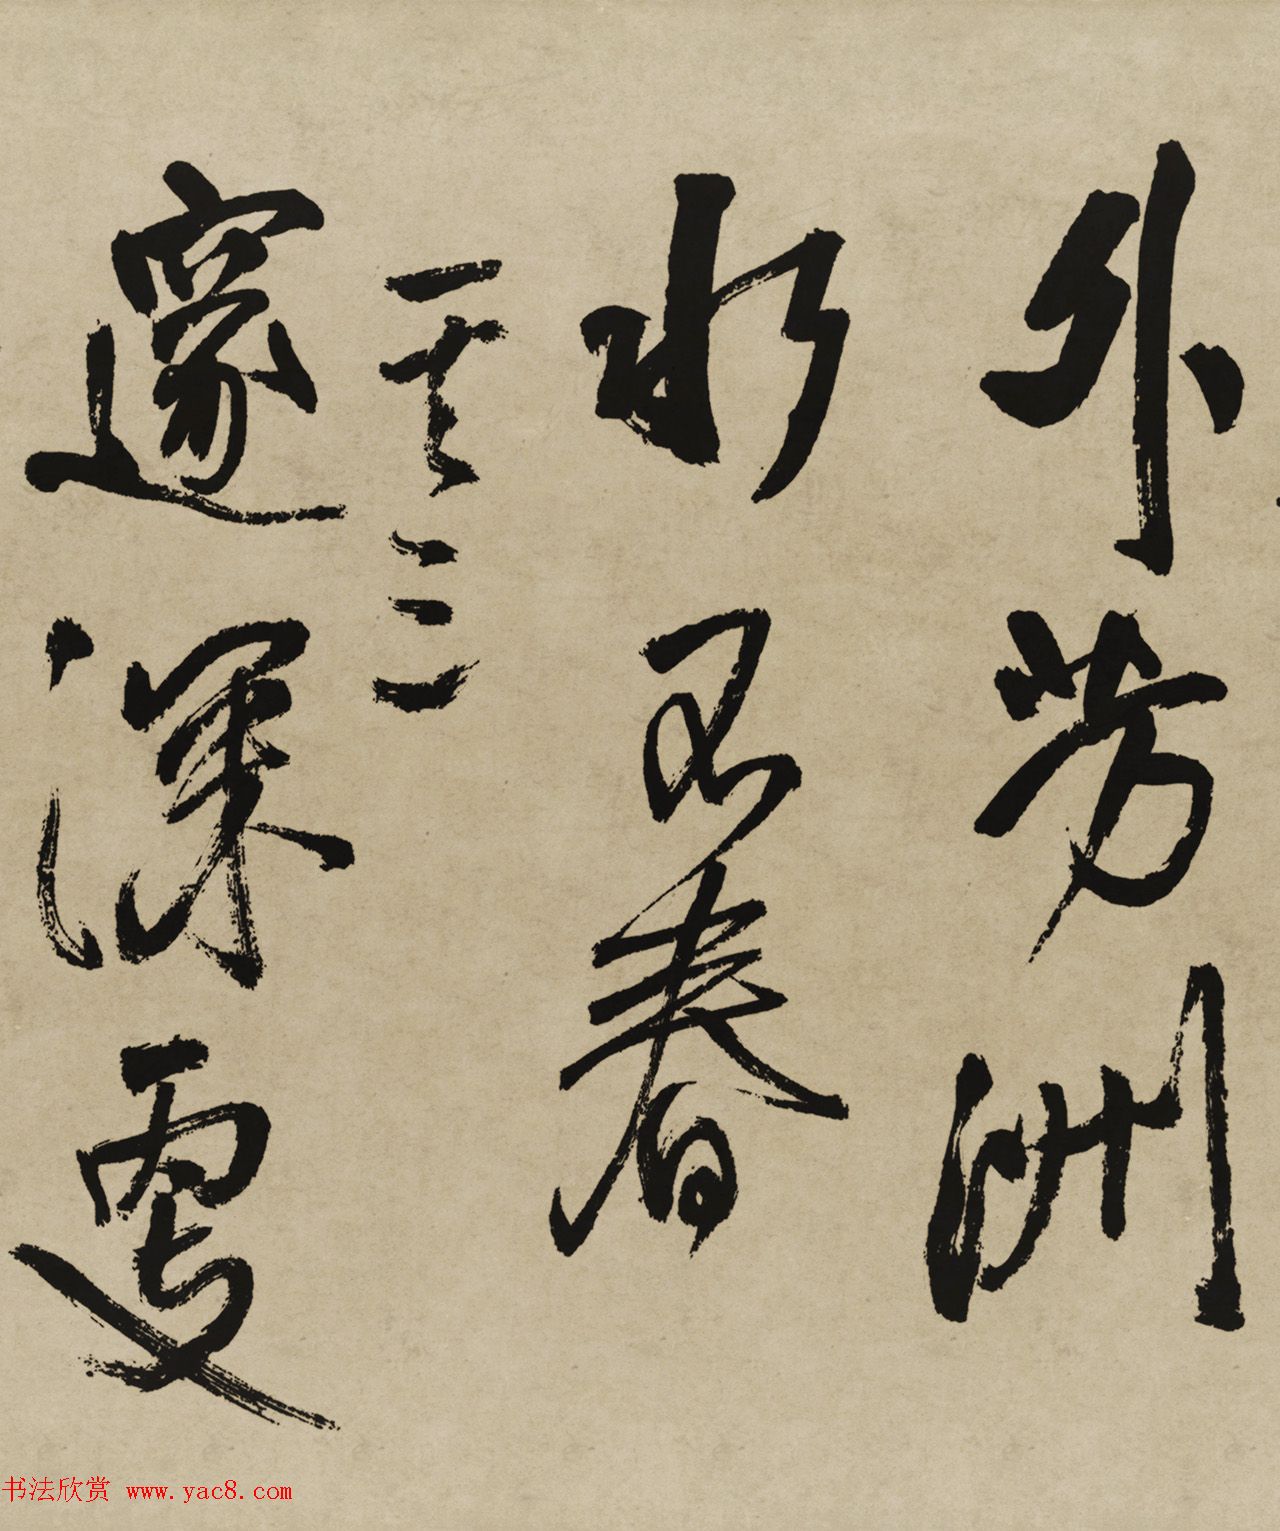 外芳洲
水春
其三
邃深處
书法欣赏 www.yac8.com